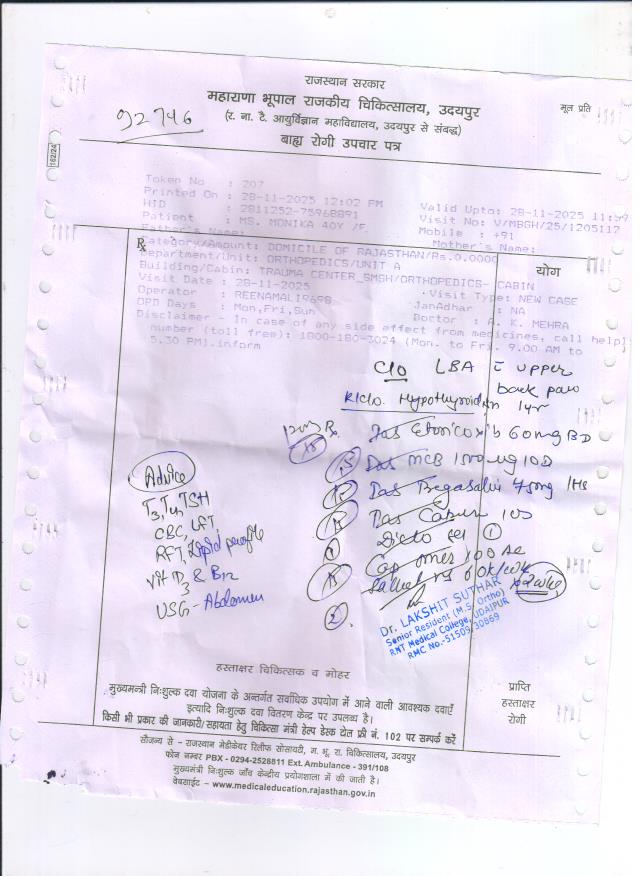 राजस्थान सरकार
महाराणा भूपाल राजकीय चिकित्सालय, उदयपुर
मूल प्रति
92746
(र. ना. टै. आयुर्विज्ञान महाविद्यालय, उदयपुर से संबद्ध)
बाह्य रोगी उपचार पत्र
Token No : 207
Printed On : 28-11-2025 12:02 PM
Valid Upto: 28-11-2025 11:59
HID : 2811252-75968891
Visit No: V/MBGH/25/1205112
Patient : MS. MONIKA 40Y /F
Mobile : +91
Father's Name:
Mother's Name:
Rx
Category/Amount: DOMICILE OF RAJASTHAN/Rs.0.0000
Department/Unit: ORTHOPEDICS/UNIT A
योग
Building/Cabin: TRAUMA CENTER_SMGH/ORTHOPEDICS- CABIN
Visit Date : 28-11-2025
Visit Type: NEW CASE
Operator : REENAMAL19698
JanAadhar : NA
OPD Days : Mon,Fri,Sun
Doctor : A. K. MEHRA
Disclaimer - In case of any side effect from medicines, call help
number (toll free): 1800-180-3024 (Mon. to Fri. 9.00 AM to
5.30 PM).inform
C/O LBA c̄ upper
back pain
K/C/O. Hypothyroidism 1yr
Rx Tas Etoricoxib 60mg BD
15 Tas MCB 1500ug 1OD
Advice
Tas 75mg 1HS
T3, T4, TSH
CBC, LFT,
Diclo gel 1
RFT, Lipid profile
Vit D3 & B12
60K/wk
USG - Abdomen
2
Dr. LAKSHIT SUTHAR
Senior Resident (M.S. Ortho)
RNT Medical College, UDAIPUR
RMC No.-51509/30869
हस्ताक्षर चिकित्सक व मोहर
मुख्यमन्त्री निःशुल्क दवा योजना के अन्तर्गत सर्वाधिक उपयोग में आने वाली आवश्यक दवाएँ
इत्यादि निःशुल्क दवा वितरण केन्द्र पर उपलब्ध है।
किसी भी प्रकार की जानकारी/सहायता हेतु चिकित्सा मंत्री हेल्प डेस्क टोल फ्री नं. 102 पर सम्पर्क करें
प्राप्ति
हस्ताक्षर
रोगी
सौजन्य से - राजस्थान मेडीकेयर रिलीफ सोसायटी, म. भू. रा. चिकित्सालय, उदयपुर
फोन नम्बर PBX - 0294-2528811 Ext. Ambulance - 391/108
मुख्यमंत्री निःशुल्क जाँच केन्द्रीय प्रयोगशाला में की जाती है।
वेबसाईट - www.medicaleducation.rajasthan.gov.in